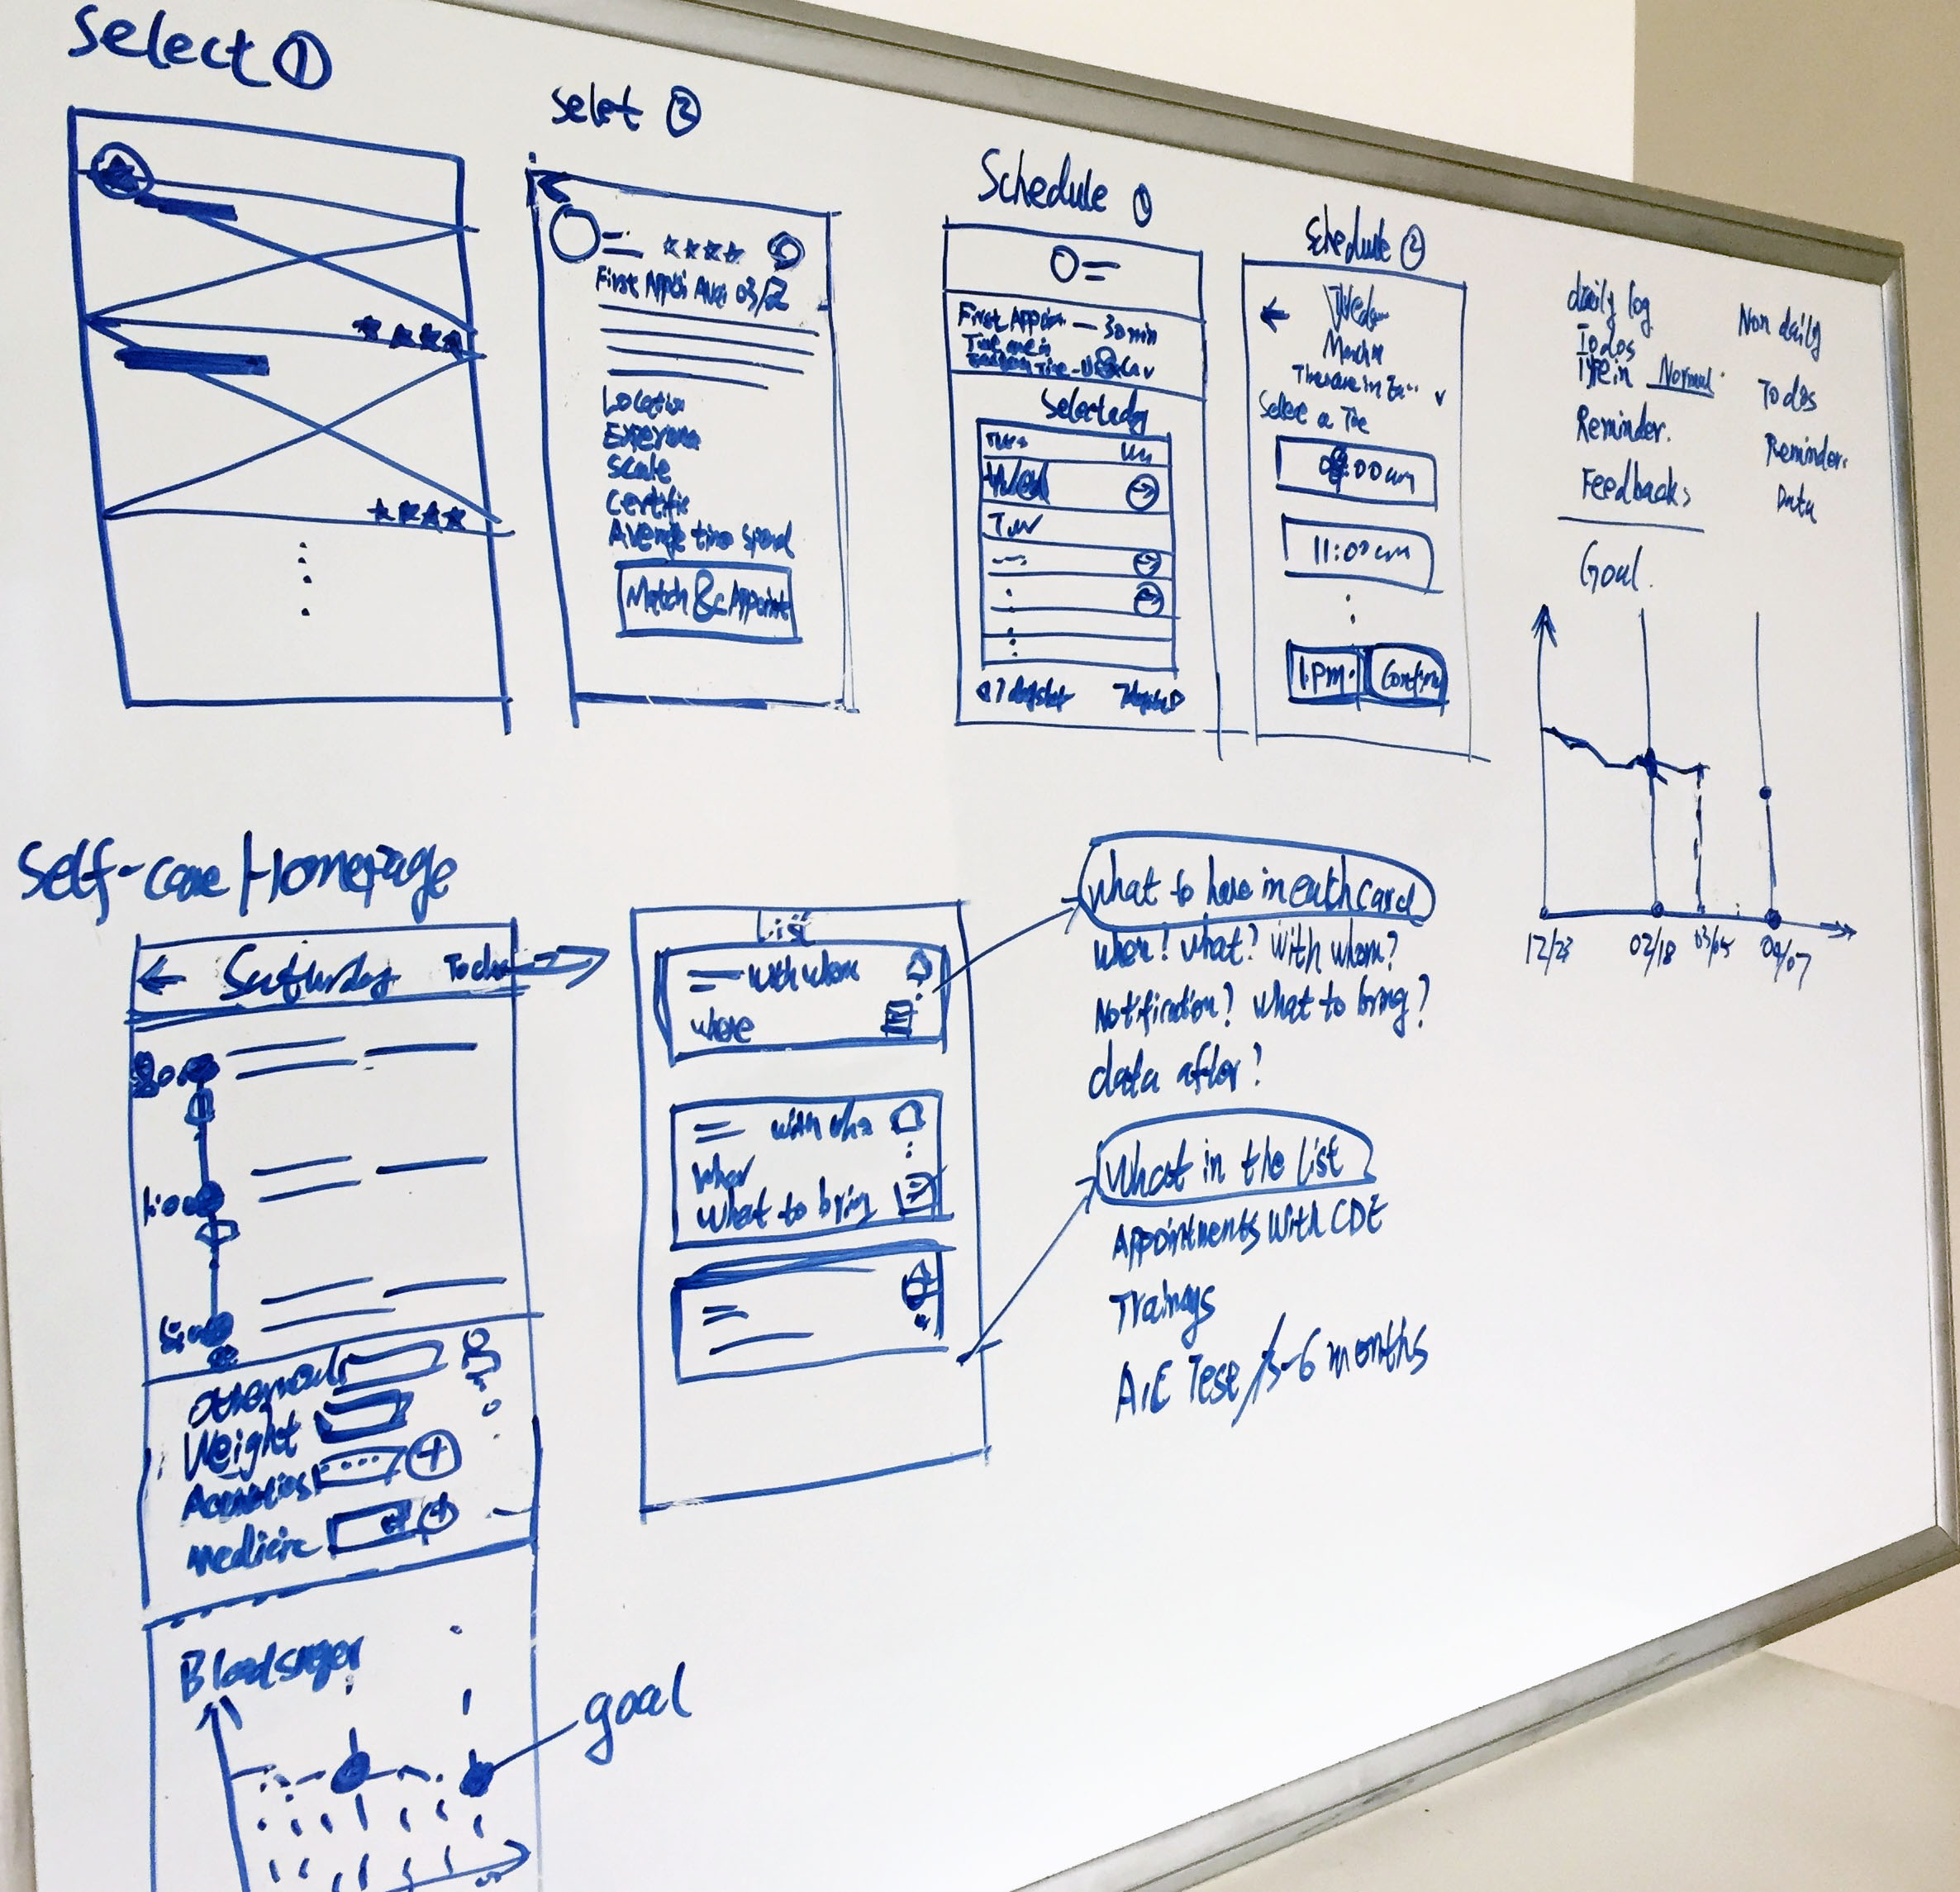 Select ①
Selet ②
First Appoi Avai 03/22
Location
Experience
Scale
Certific
Average time spend
Match & Appoint
Schedule ①
First Appoint — 30 min
Select a day
Wed
Schedule ②
←
Select a Time
11:00 am
1 pm.
Confirm
daily log
Todos
Type in Normal
Reminder.
Feedbacks
Goal.
Non daily
Todos
Reminder.
Data
12/23
02/18
03/05
04/07
Self-care Homepage
← Saturday Today
Weight
Activities
medicine
Blood suger
goal
List
with whom
where
with who
What to bring
what to have in each card
when? what? with whom?
Notification? what to bring?
data after?
What in the list
Appointments with CDE
Trainings
A1C Test / 3-6 months